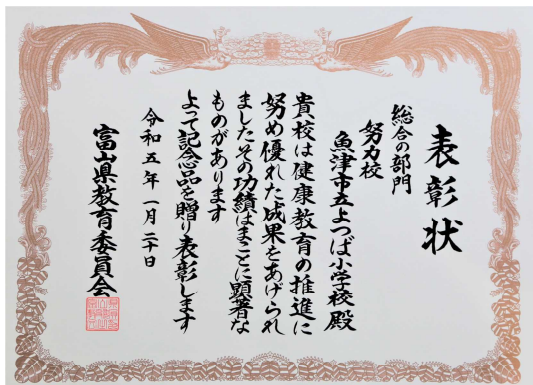 表彰状
総合の部門
努力校
魚津市立よつば小学校殿
貴校は健康教育の推進に
努め優れた成果をあげられ
ましたその功績はまことに顕著な
ものがあります
よって記念品を贈り表彰します
令和五年一月二十日
富山県教育委員会